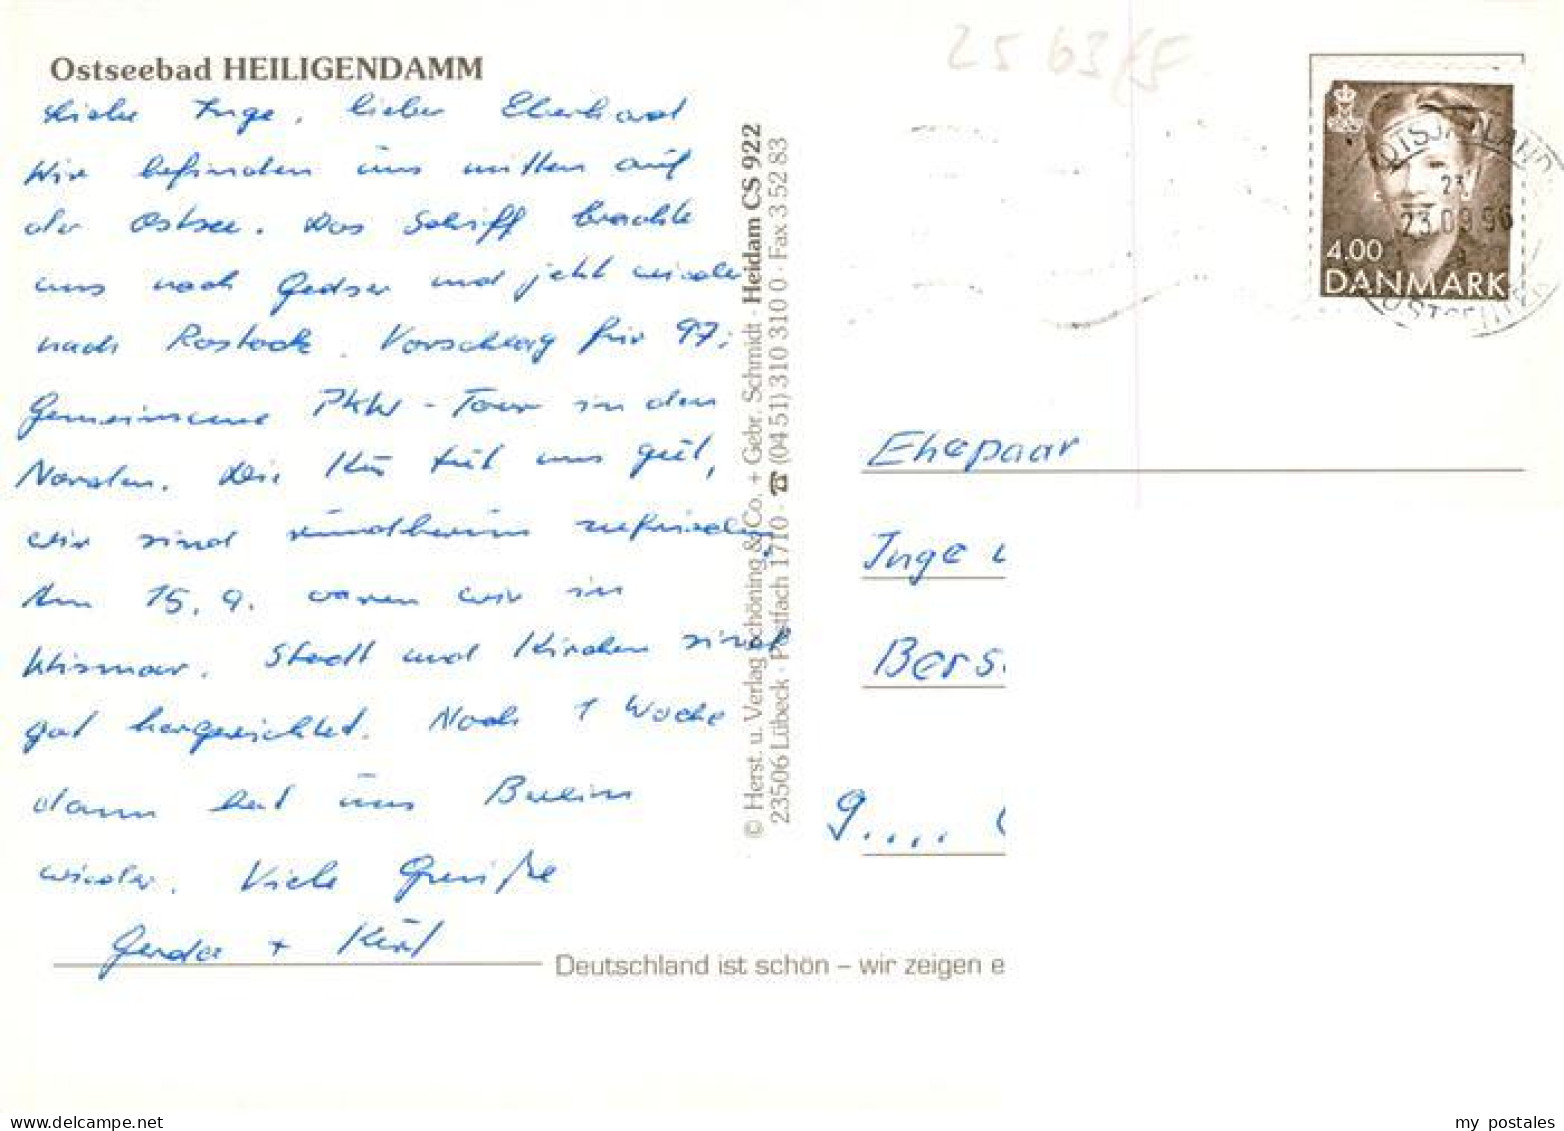 25 63/15
Ostseebad HEILIGENDAMM
Liebe Inge, lieber Eberhard
Wir befinden uns mitten auf
der Ostsee. Das Schiff brachte
uns nach Gedser und jetzt wieder
nach Rostock. Vorschlag für 97:
Gemeinsame PKW-Tour in den
Norden. Die Kur tut uns gut,
wir sind rundherum zufrieden.
Am 15.9. waren wir in
Wismar. Stadt und Kirchen sind
gut hergerichtet. Noch 1 Woche
dann hat uns Berlin
wieder. Viele Grüße
Gerda + Kurt
© Herst. u. Verlag Schöning & Co. + Gebr. Schmidt · Heidam CS 922
23506 Lübeck · Postfach 1710 · ☎ (04 51) 310 310 0 · Fax 3 52 83
4.00
DANMARK
23.09.96
Ehepaar
Inge
Bers
9....
Deutschland ist schön – wir zeigen e
delcampe.net
my_postales